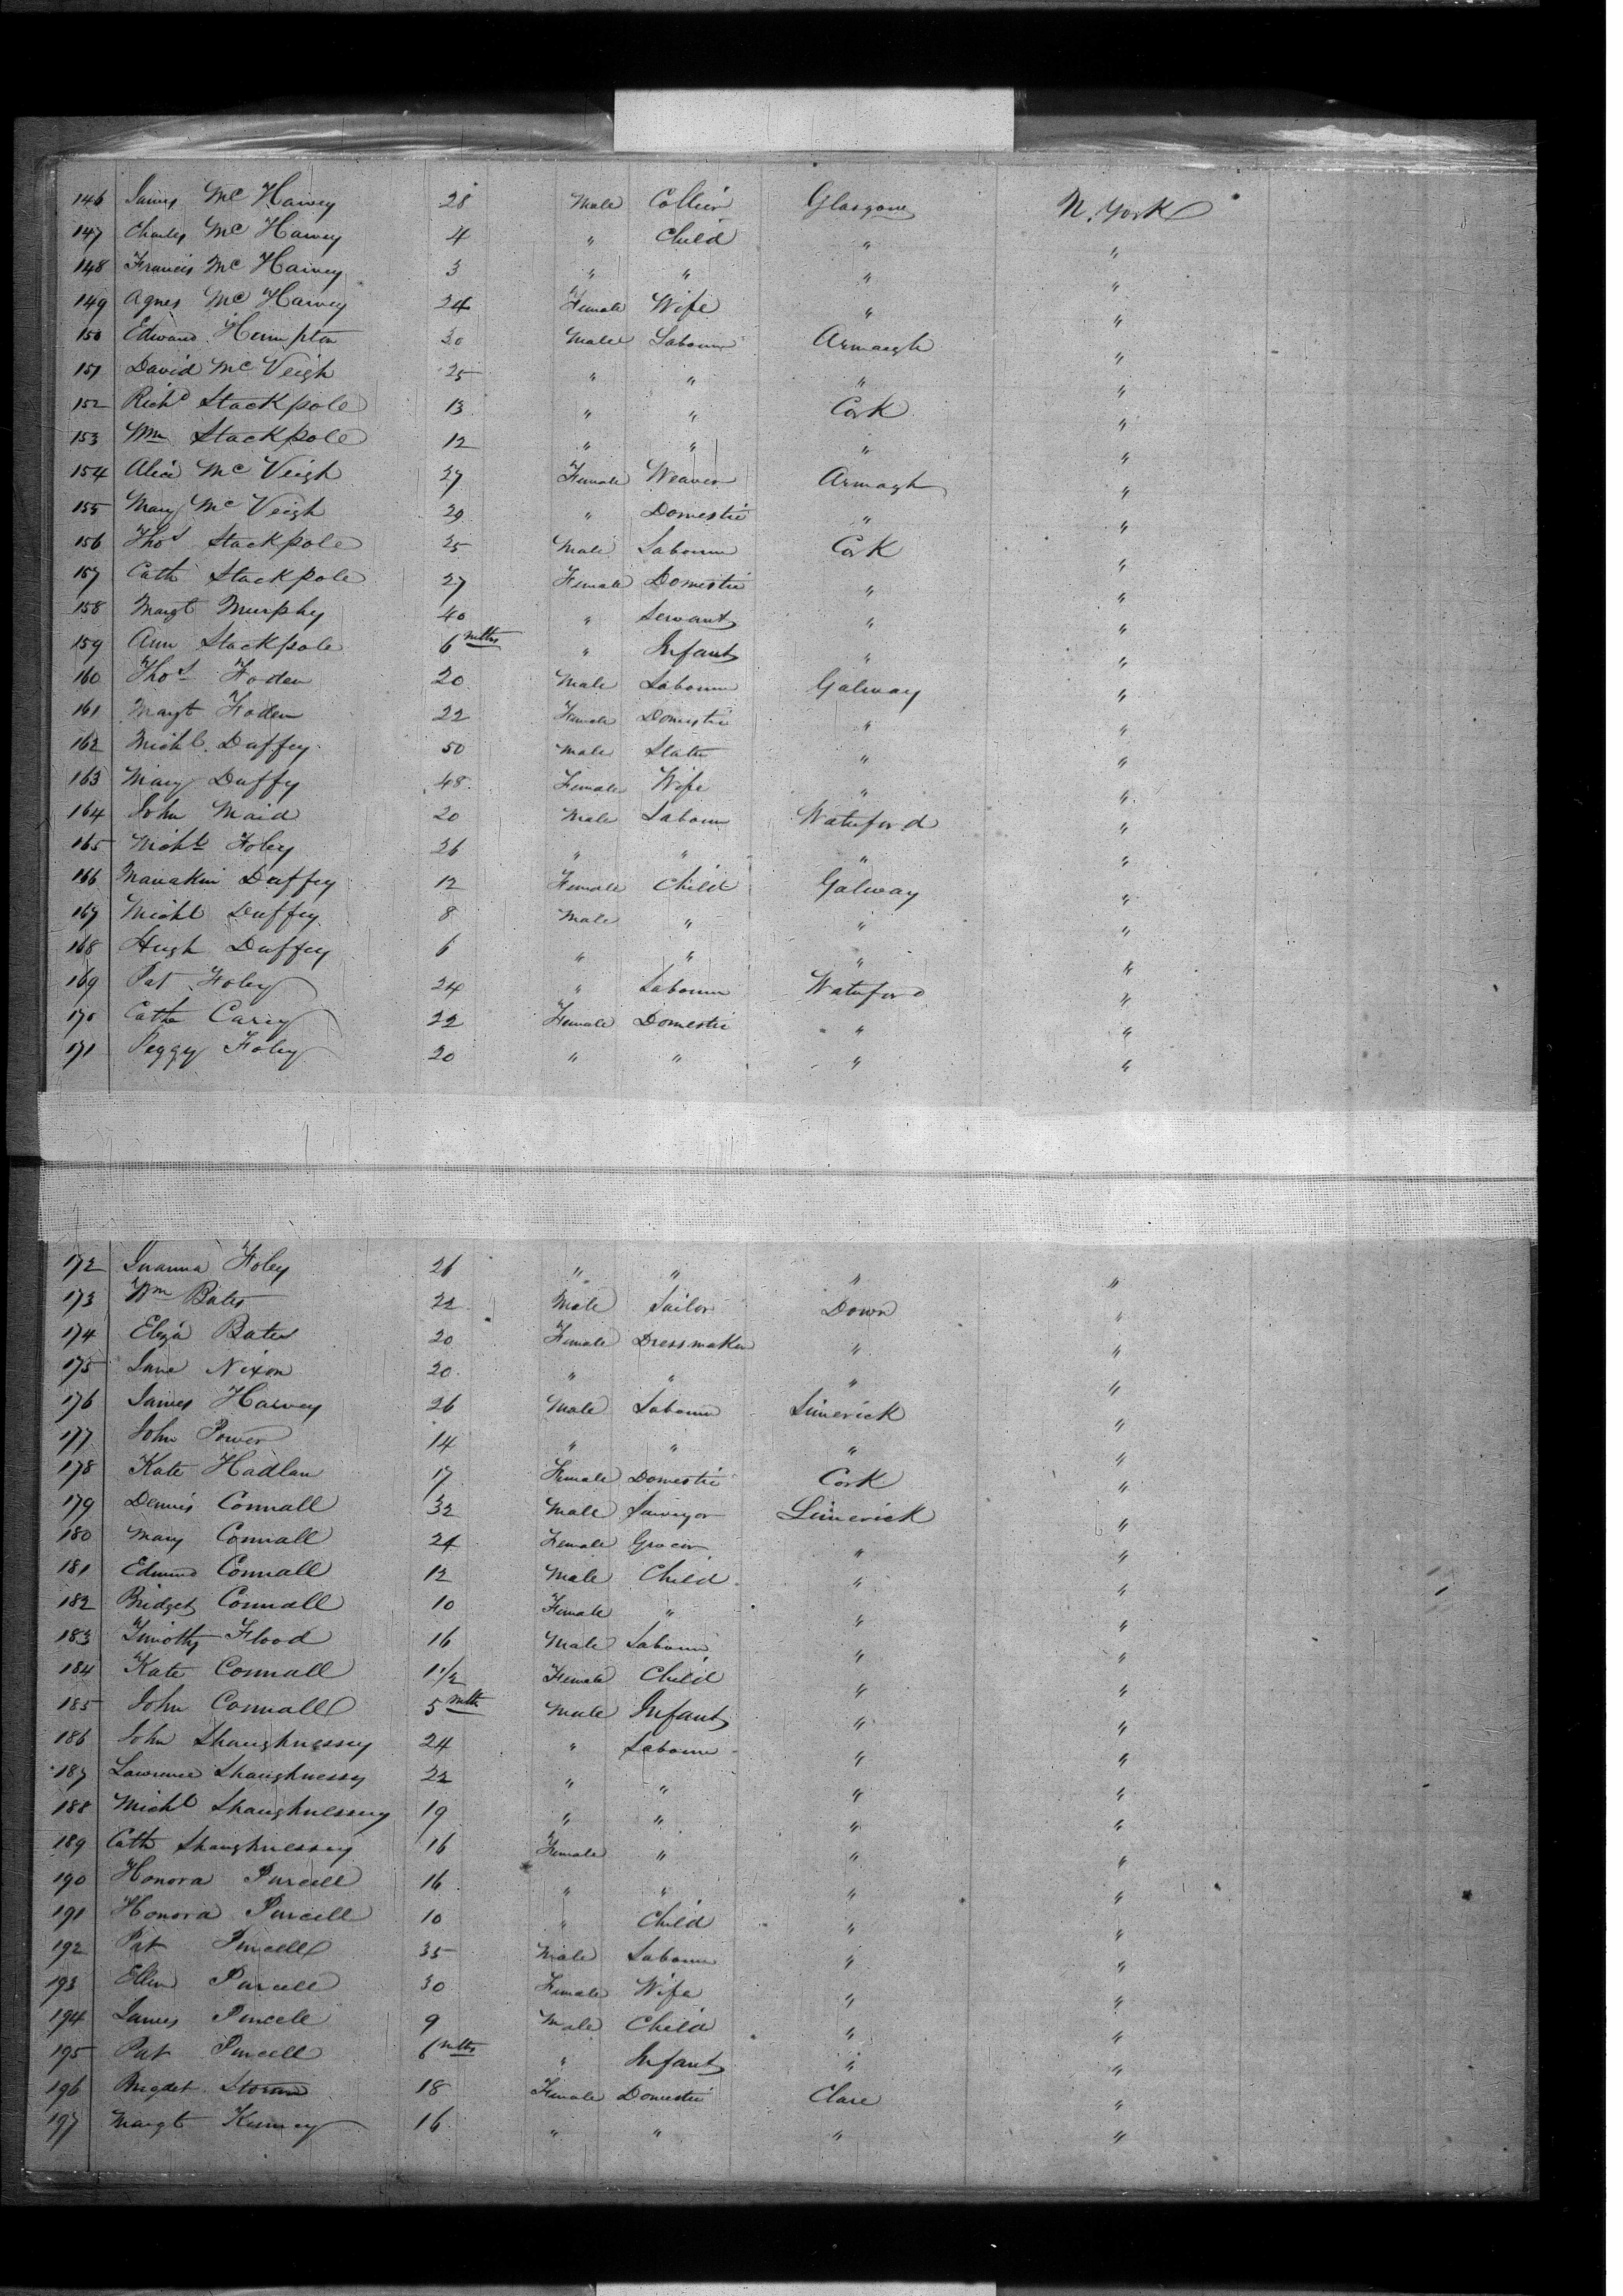 146 James Mc Harvey 28 Male Collier Glasgow N. York
147 Charles Mc Harvey 4 " Child " "
148 Francis Mc Harvey 3 " " " "
149 Agnes Mc Harvey 24 Female Wife " "
150 Edward Hempton 30 Male Labourer Armagh "
151 David Mc Veigh 25 " " " "
152 Richd Stackpole 13 " " Cork "
153 Wm Stackpole 12 " " " "
154 Alice Mc Veigh 27 Female Weaver Armagh "
155 Mary Mc Veigh 29 " Domestic " "
156 Thos Stackpole 25 Male Labourer Cork "
157 Cath Stackpole 27 Female Domestic " "
158 Margt Murphy 40 " Servant " "
159 Ann Stackpole 6 mths " Infant " "
160 Thos Foden 20 Male Labourer Galway "
161 Margt Foden 22 Female Domestic " "
162 Michl Duffey 50 Male Slater " "
163 Mary Duffy 48 Female Wife " "
164 John Maid 20 Male Labour Waterford "
165 Michl Foley 26 " " " "
166 Duffey 12 Female Child Galway "
167 Michl Duffey 8 Male " " "
168 Hugh Duffey 6 " " " "
169 Pat Foley 24 " Labourer Waterford "
170 Cath Carey 22 Female Domestic " "
171 Peggy Foley 20 " " " "
172 Foley 26 " " " "
173 Wm Bates 22 Male Down "
174 Eliza Bates 20 Female Dressmaker " "
175 Jane Nixon 20 " " " "
176 James Harvey 26 Male Labourer Limerick "
177 John Power 14 " " " "
178 Kate Hadlan 17 Female Domestic Cork "
179 Dennis Connall 32 Male Surveyor Limerick "
180 Mary Connall 24 Female Grocer " "
181 Edmund Connall 12 Male Child " "
182 Bridget Connall 10 Female " " "
183 Timothy Flood 16 Male Labourer " "
184 Kate Connall 1 1/2 Female Child " "
185 John Connall 5 mth Male Infant " "
186 John Shaughnessey 24 " Labourer " "
187 Lawrence Shaughnessy 22 " " " "
188 Michl Shaughnessey 19 " " " "
189 Cath Shaughnessey 16 Female " " "
190 Honora Purcell 16 " " " "
191 Honora Purcell 10 " Child " "
192 Pat Purcell 35 Male Labourer " "
193 Ellen Purcell 30 Female Wife " "
194 James Purcell 9 Male Child " "
195 Pat Purcell 6 mths " Infant " "
196 Brigdet Storan 18 Female Domestic Clare "
197 Margt 16 " " " "